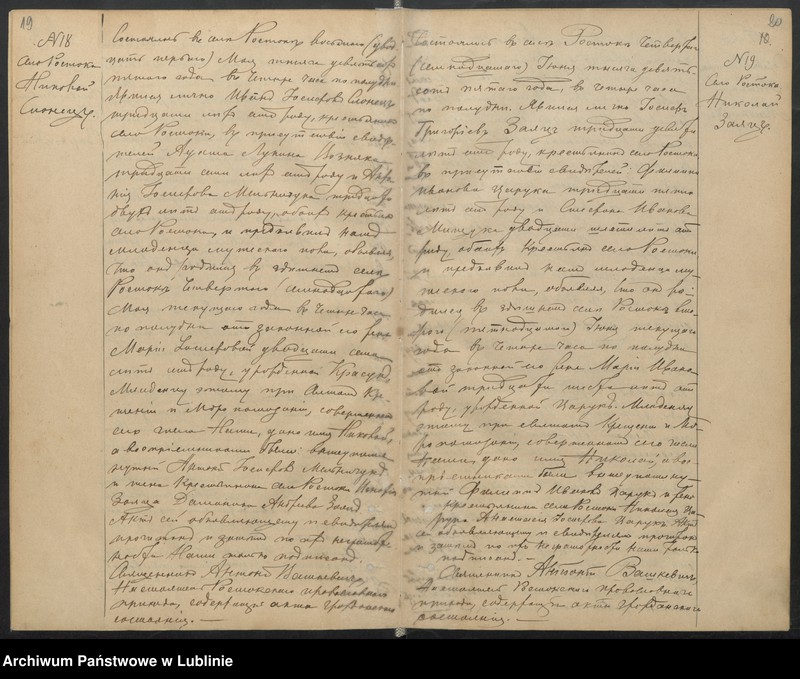 19
№18
Село Ростока
Николай
Состоялось въ селѣ Ростокѣ восьмого (двад
цать перваго) Мая тысяча девятьсотъ
пятаго года, въ четыре часа по полудни
Явился лично Іосифовъ
тридцати лѣтъ отъ роду, крестьянинъ
села Ростоки, въ присутствіи свидѣ
телей Лукина Возняка
тридцати семи лѣтъ отъ роду и
Іосифова Мельничука тридцати
двухъ лѣтъ отъ роду, обоихъ крестьянъ
села Ростоки, и предъявилъ намъ
младенца мужескаго пола, объявляя,
что онъ родился въ здѣшнемъ селѣ
Ростокѣ четвертаго (семнадцатаго)
Мая текущаго года въ четыре часа
по полудни отъ законной его жены
Маріи Іосифовой двадцати семи
лѣтъ отъ роду, урожденной
Младенцу этому при Святомъ Кре
щеніи и Мѵропомазаніи, совершенномъ
сего числа Нами, дано имя Николай,
а воспріемниками были: вышеупомя
нутый Іосифовъ Мельничукъ
и жена крестьянина села Ростоки
Заяца Андреева Заяцъ.
Актъ сей объявляющему и свидѣтелямъ
прочитанъ и по ихъ неграмот
ности Нами только подписанъ.
Священникъ Антоній Вашкевичъ
Настоятель Ростокскаго православнаго
прихода, содержащій акты гражданскаго
состоянія. —
20
№19
Село Ростока
Николай
Заяцъ.
Состоялось въ селѣ Ростокѣ четвертаго
(семнадцатаго) Іюня тысяча девять
сотъ пятаго года, въ четыре часа
по полудни. Явился лично Іосифъ
Григорьевъ Заяцъ тридцати девяти
лѣтъ отъ роду, крестьянинъ села Ростоки
въ присутствіи свидѣтелей: Филиппа
Иванова Цирука тридцати пяти
лѣтъ отъ роду и Стефана Иванова
двадцати шести лѣтъ отъ
роду, обоихъ крестьянъ села Ростоки
и предъявилъ намъ младенца му
жескаго пола, объявляя, что онъ ро
дился въ здѣшнемъ селѣ Ростокѣ вто
раго (пятнадцатаго) Іюня текущаго
года въ четыре часа по полудни
отъ законной его жены Маріи Ивано
вой тридцати лѣтъ отъ
роду, урожденной Цирукъ. Младенцу
этому при святомъ Крещеніи и Мѵ
ропомазаніи, совершенномъ сего числа
Нами, дано имя Николай, а вос
пріемниками были: вышеупомяну
тый Филиппъ Ивановъ Цирукъ и жена
крестьянина села Ростоки Николая Ци
рука Анастасія Іосифова Цирукъ. Актъ
сей объявляющему и свидѣтелямъ прочитанъ
и по ихъ неграмотности Нами только
подписанъ. —
Священникъ Антоній Вашкевичъ
Настоятель Ростокскаго православнаго
прихода, содержащій акты гражданскаго
состоянія. —
Archiwum Państwowe w Lublinie